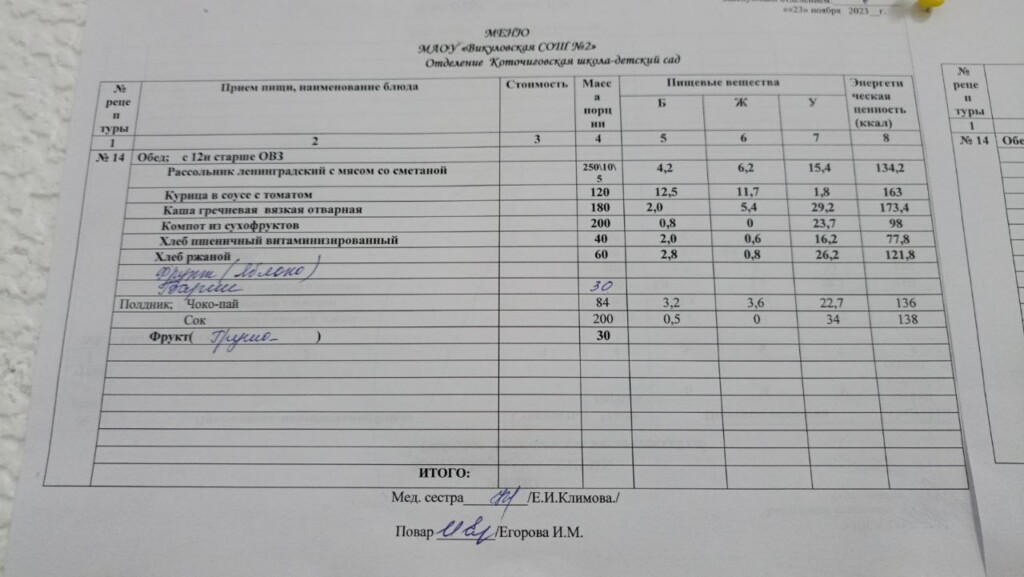 «23» ноября 2023 г.
МЕНЮ
МАОУ «Викуловская СОШ №2»
Отделение Коточиговская школа-детский сад
№ рецептуры Прием пищи, наименование блюда Стоимость Масса порции Пищевые вещества Энергетическая ценность (ккал)
Б Ж У
1 2 3 4 5 6 7 8
№ 14 Обед; с 12и старше ОВЗ
Рассольник ленинградский с мясом со сметаной 250\10\5 4,2 6,2 15,4 134,2
Курица в соусе с томатом 120 12,5 11,7 1,8 163
Каша гречневая вязкая отварная 180 2,0 5,4 29,2 173,4
Компот из сухофруктов 200 0,8 0 23,7 98
Хлеб пшеничный витаминизированный 40 2,0 0,6 16,2 77,8
Хлеб ржаной 60 2,8 0,8 26,2 121,8
Фрукт (Яблоко)
30
Полдник; Чоко-пай 84 3,2 3,6 22,7 136
Сок 200 0,5 0 34 138
Фрукт( ) 30
ИТОГО:
Мед. сестра /Е.И.Климова./
Повар /Егорова И.М.
№ рецептуры
1
№ 14 Обе